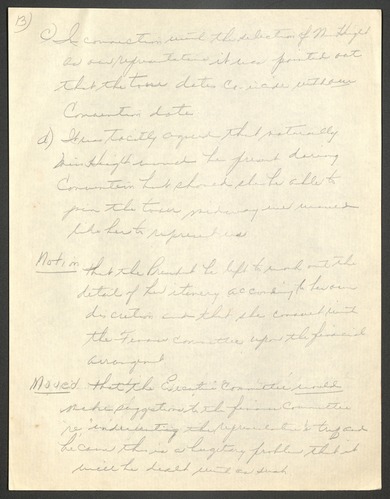 13)
c) In connection with the selection of Miss Haight
as our representative it was pointed out
that the tour dates coincide with our
Convention date
d) It was tacitly agreed that naturally
Miss Haight would be present during
Convention but should she be able to
join the tour midway we would
like her to represent us
Motion that the President be left to work out the
detail of her itinery according to her own
discretion and that she consult with
the Finance committee upon the financial
arrangement
Moved that the Executive Committee would
make suggestions to the finance Committee
re
because this is a budgetary problem that it
will be dealt with as such